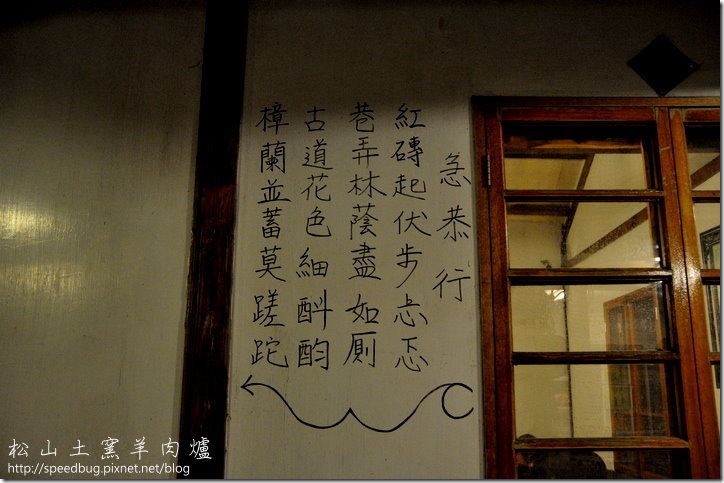 急恭行
紅磚起伏步忐忑
巷弄林蔭盡如厠
古道花色細酙酌
樟蘭並蓄莫蹉跎
松山土窯羊肉爐
http://speedbug.pixnet.net/blog